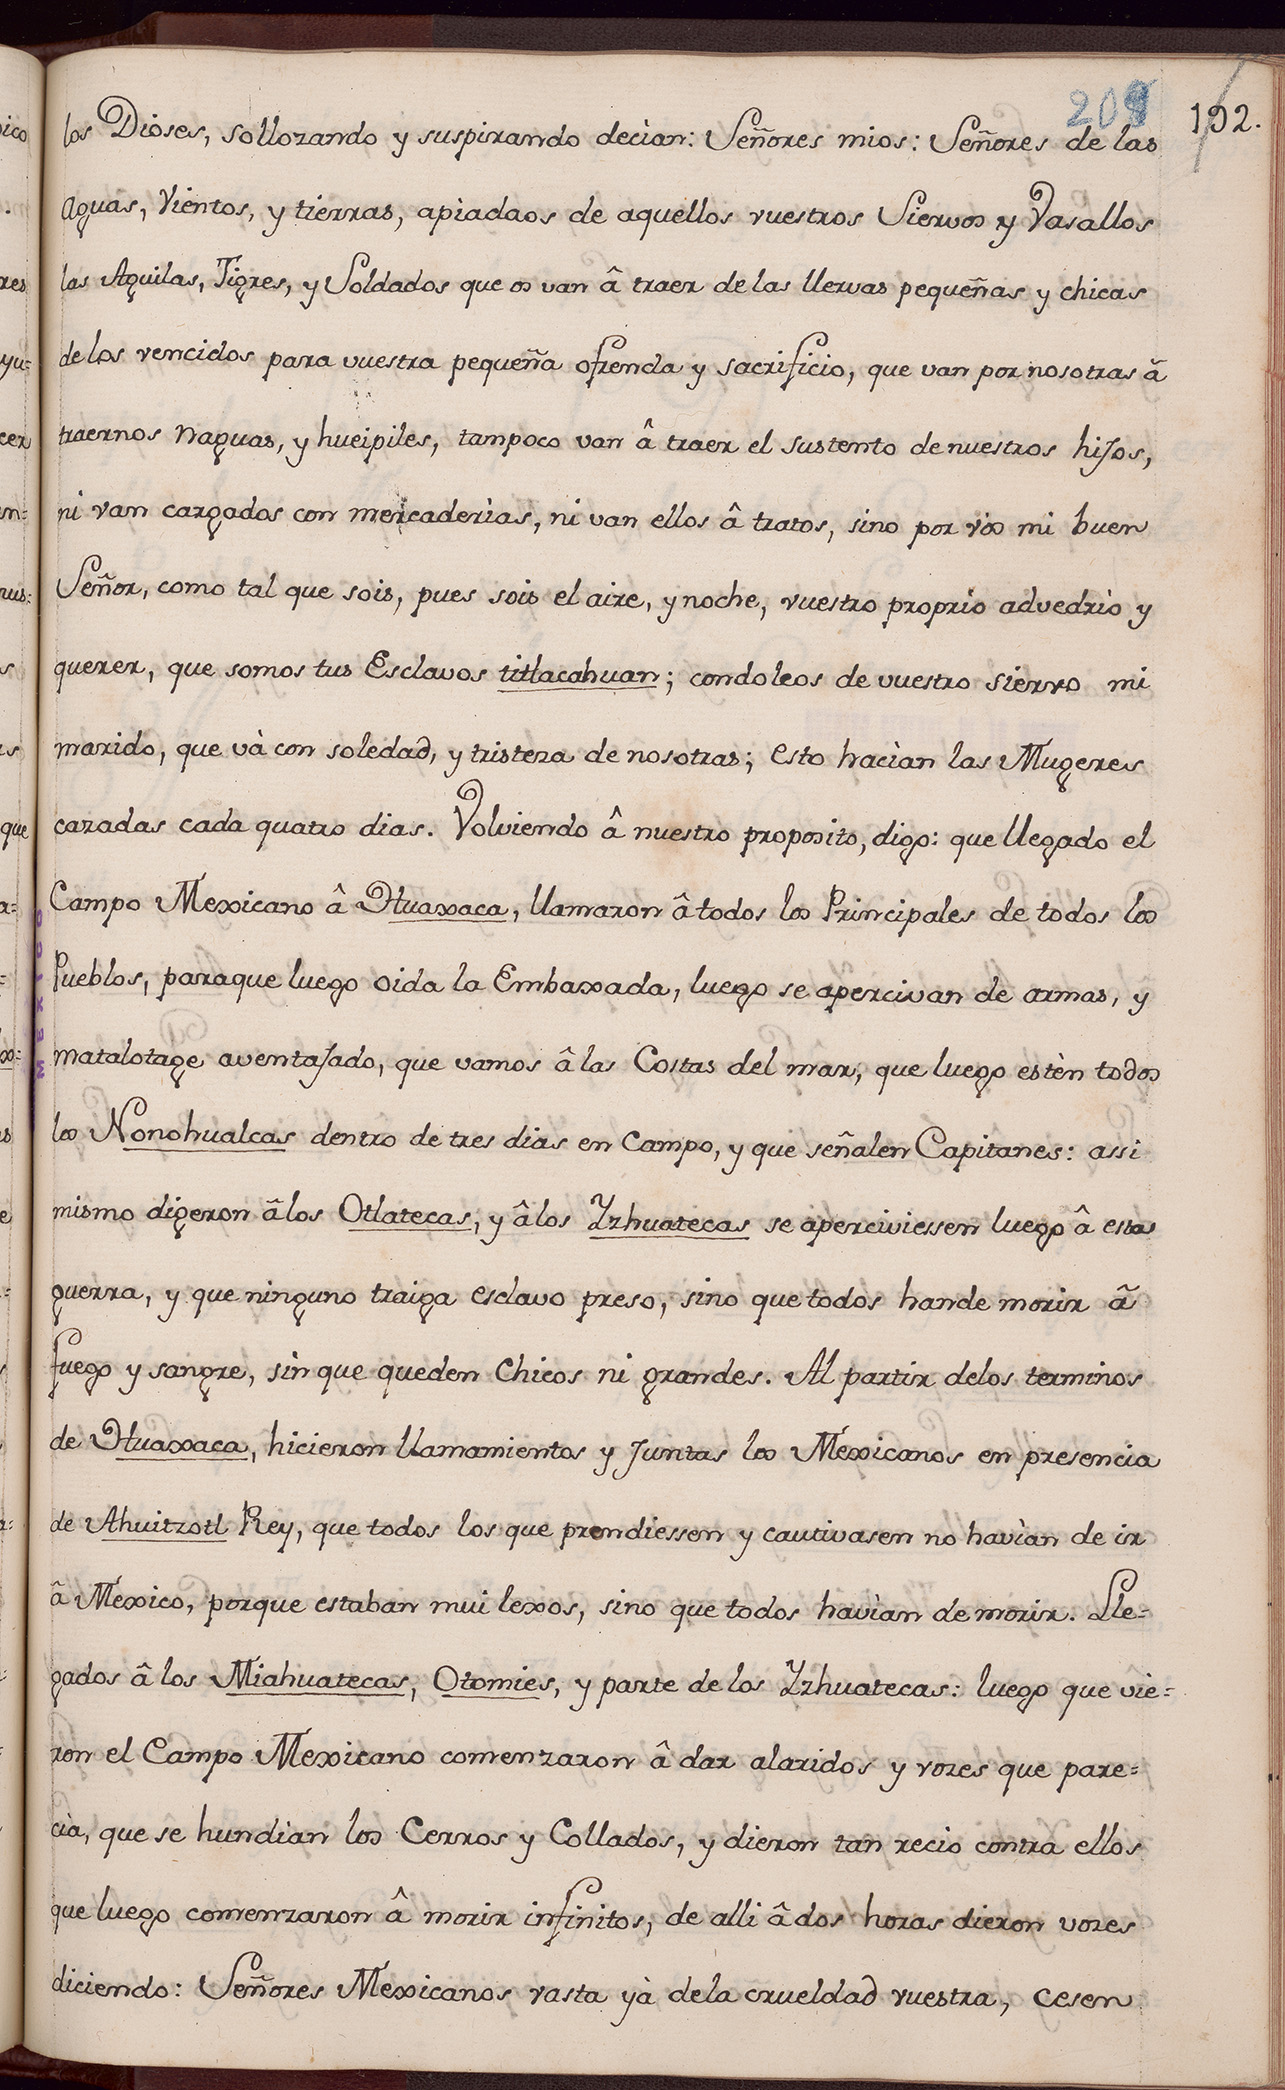 209 192.
los Dioses, sollozando y suspirando decian: Señores mios: Señores de las
Aguas, Vientos, y tierras, apiadaos de aquellos vuestros Siervos y Vasallos
las Aguilas, Tigres, y Soldados que os van â traer de las llervas pequeñas y chicas
de los vencidos para vuestra pequeña ofrenda y sacrificio, que van por nosotras â
traernos Naguas, y hueipiles, tampoco van â traer el sustento de nuestros hijos,
ni van cargados con mercaderìas, ni van ellos â tratos, sino por vòs mi buen
Señor, como tal que sois, pues sois el aire, y noche, vuestro proprio advedrìo y
querer, que somos tus Esclavos titlacahuan; condoleos de vuestro siervo mi
marido, que và con soledad, y tristeza de nosotras; esto hacìan las Mugeres
cazadas cada quatro dias. Volviendo â nuestro proposito, digo: que llegado el
Campo Mexicano â Huaxaca, llamaron â todos los Principales de todos los
Pueblos, paraque luego oida la Embaxada, luego se apercivan de armas, y
matalotage aventajado, que vamos â las Costas del mar, que luego estèn todos
los Nonohualcas dentro de tres dias en Campo, y que señalen Capitanes: assi
mismo digeron âlos Otlatecas, y âlos Yzhuatecas se aperciviessen luego â esta
guerra, y que ninguno traiga esclavo preso, sino que todos hande morir â
fuego y sangre, sin que queden Chicos ni grandes. Al partir delos terminos
de Huaxaca, hicieron llamamientos y Juntas los Mexicanos en presencia
de Ahuitzotl Rey, que todos los que prendiessen y cautivasen no havìan de ir
â Mexico, porque estaban mui lexos, sino que todos havìan de morir. Lle=
gados â los Miahuatecas, Otomies, y parte de los Yzhuatecas: luego que vie=
ron el Campo Mexicano comenzaron â dar alaridos y vozes que pare=
cia, que se hundian los Cerros y Collados, y dieron tan recio contra ellos
que luego comenzaron â morir infinitos, de alli â dos horas dieron vozes
diciendo: Señores Mexicanos vasta yà dela crueldad vuestra, cesen